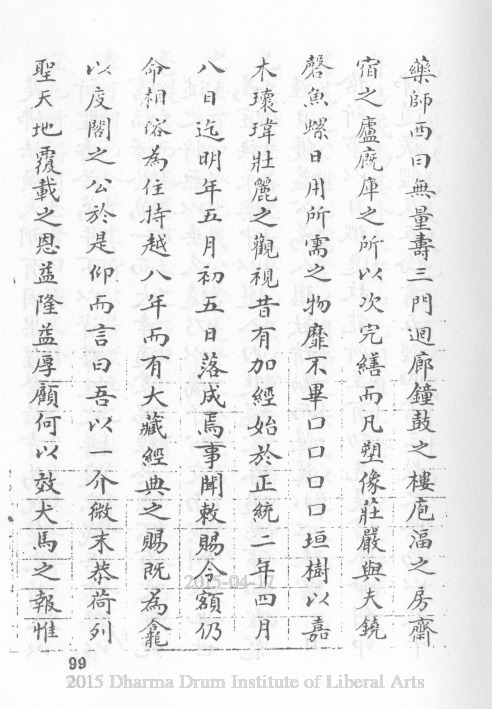 藥師西曰無量壽三門迴廊鐘鼓之樓庖湢之房齋
宿之廬廐庫之所以次完繕而凡塑像莊嚴與夫鐃
磬魚螺日用所需之物靡不畢口口口口垣樹以嘉
木瓌瑋壯麗之觀視昔有加經始於正統二年四月
八日迄明年五月初五日落成焉事聞敕賜今額仍
命相溶為住持越八年而有大藏經典之賜既為龕
以庋閣之公於是仰而言曰吾以一介微末恭荷列
聖天地覆載之恩益隆益厚顧何以效犬馬之報惟
99
2015-04-17
2015 Dharma Drum Institute of Liberal Arts